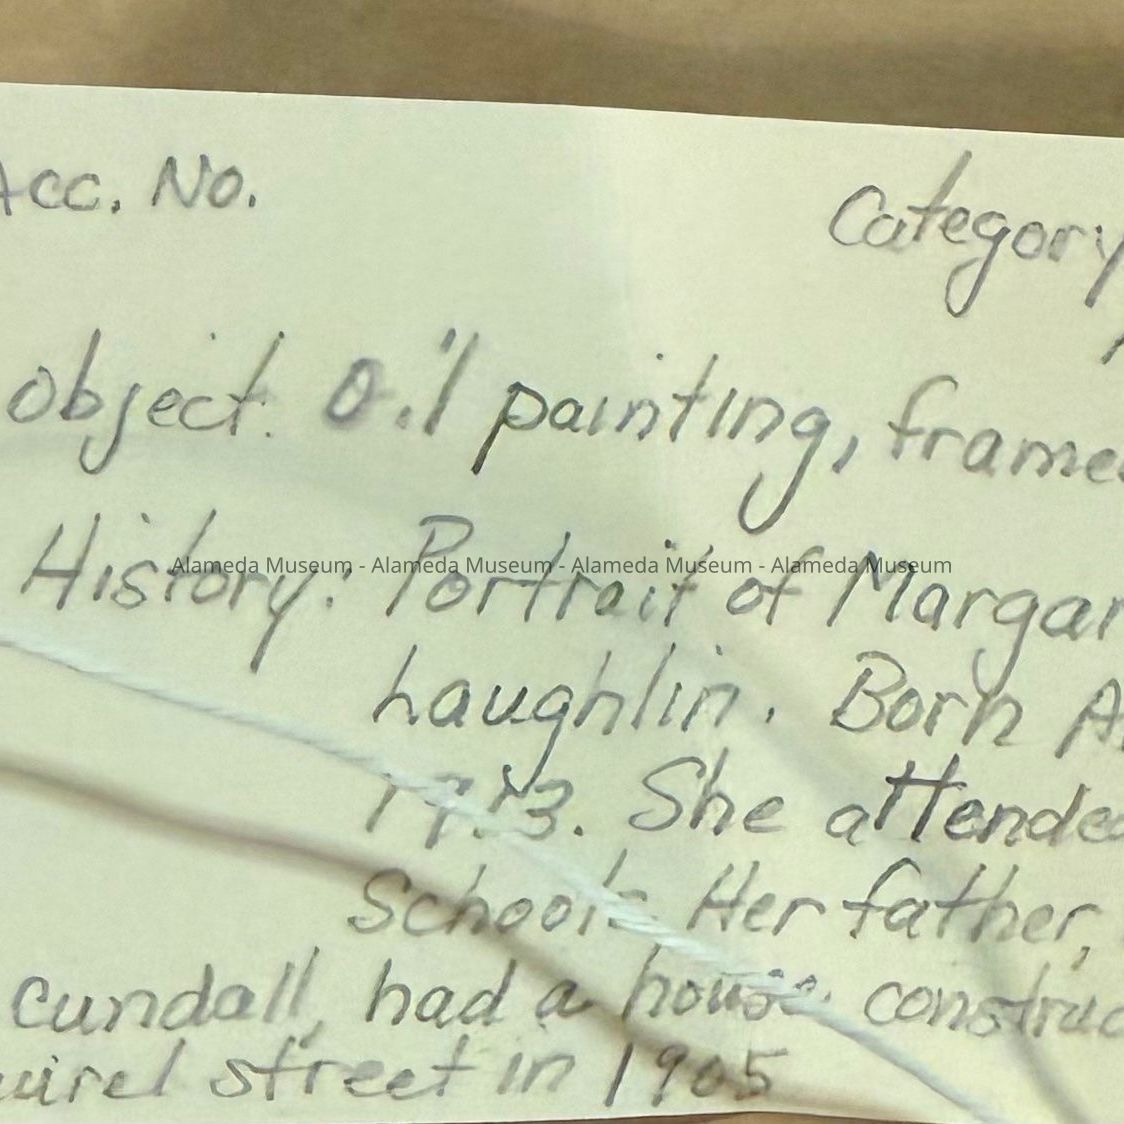 Acc. No.
Category
object. Oil painting, frame
History: Portrait of Margar
Alameda Museum - Alameda Museum - Alameda Museum - Alameda Museum
Laughlin. Born A
She attended
School. Her father,
Cundall, had a house construc
uirel street in 1905